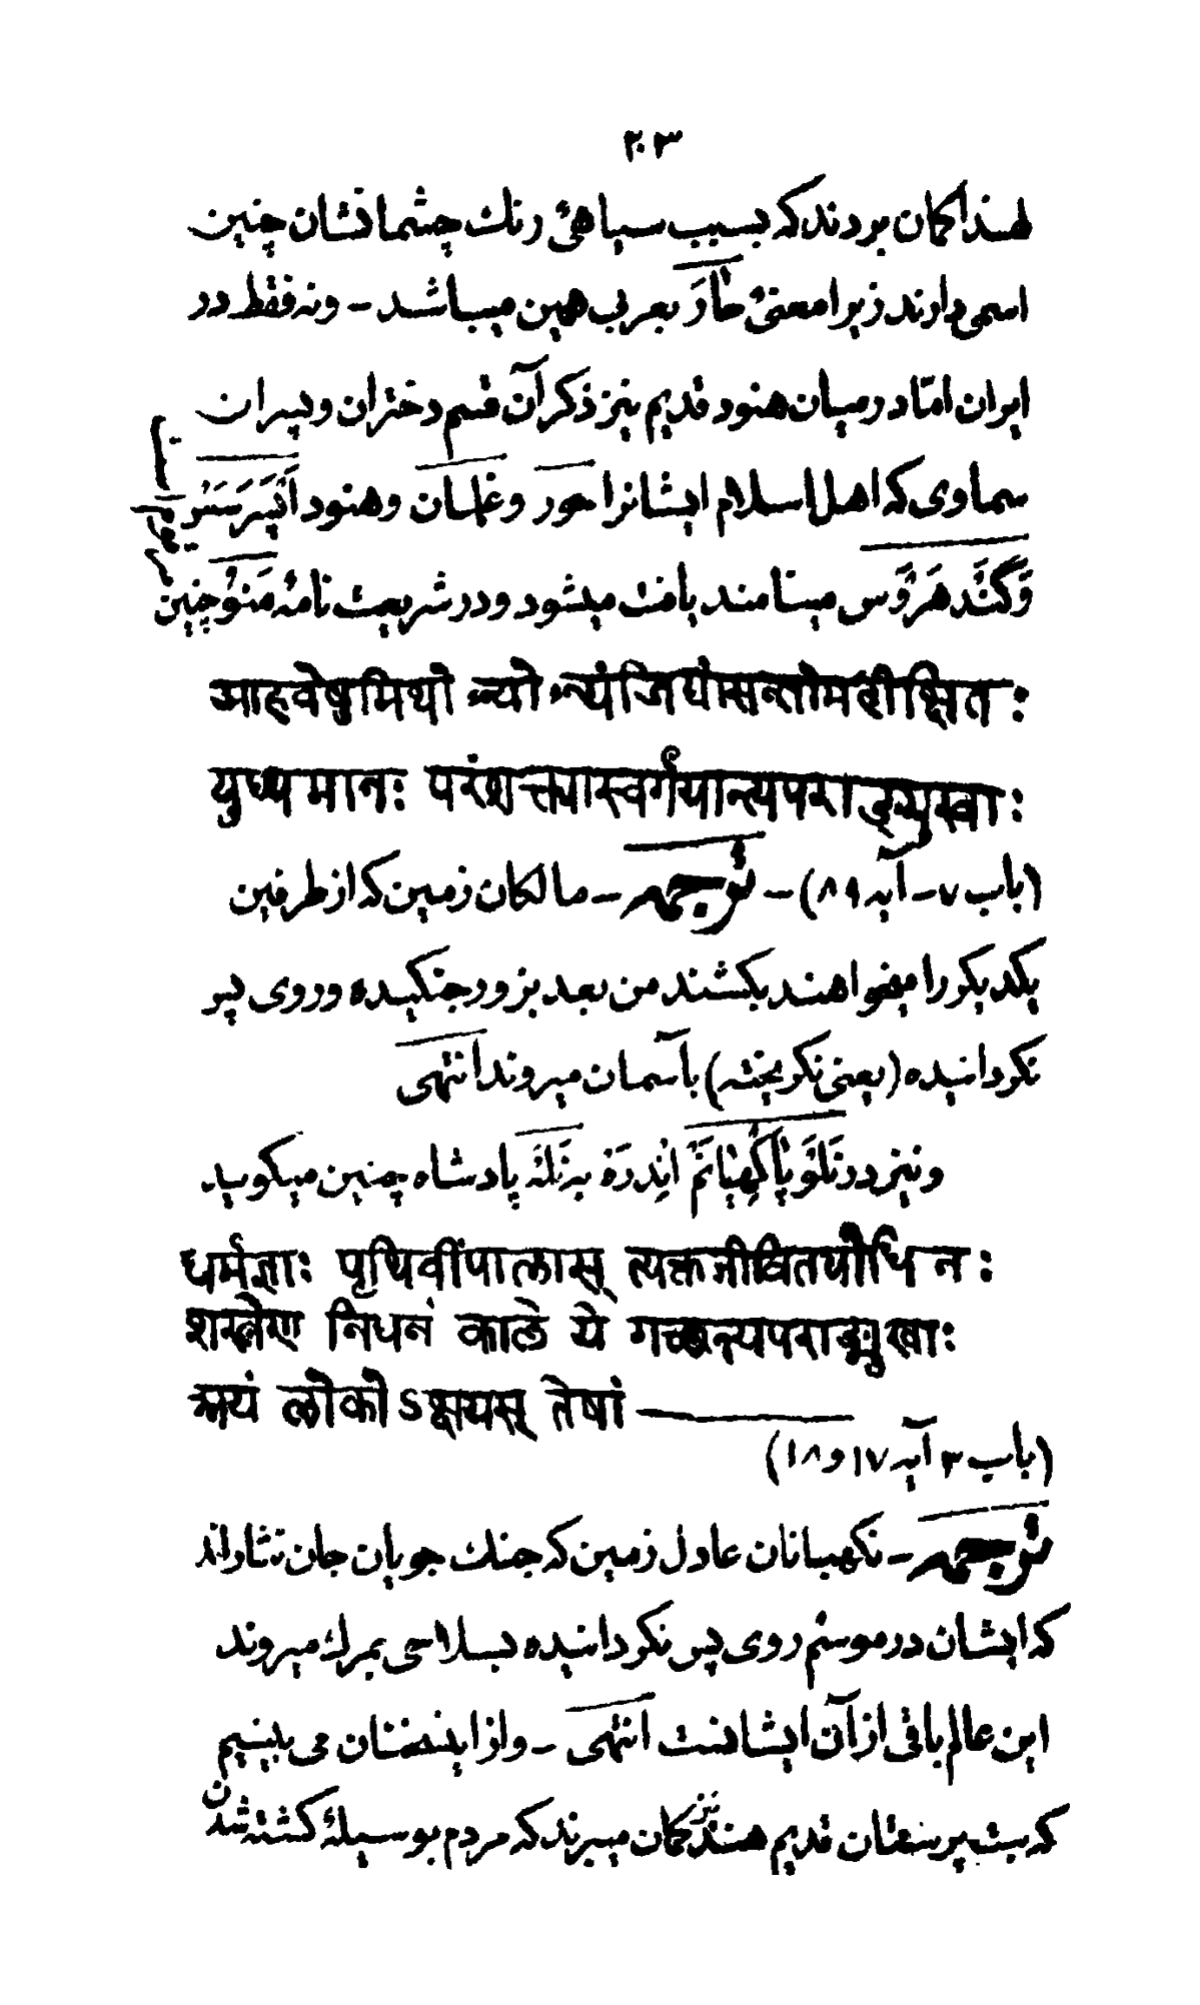 ٢٠٣
لهذا گمان بردند که بسبب سیاهیٔ رنك چشمانشان چنین
اسمی دارند زیرا معنیٔ حَاَرَ بعربی همین میباشد - ونه فقط در
ایران امّا درمیان هنود قدیم نیز ذکر آن قسم دختران وپسران
سماوی که اهل اسلام ایشانرا حور و غلمان وهنود اَپْسَرَسَس
وَّگَنْدَهَرْوَس مینامند یافت میشود ودر شریعت نامهٔ مَنوُ چنین
आहवेषु मिथो ऽन्योऽन्यं जिघांसन्तो महीक्षितः
युध्यमानाः परंशक्त्या स्वर्गं यान्त्यपराङ्मुखाः
(باب ٧ - آیه ٨٩) - ترجمه - مالکان زمین که از طرفین
یکدیکر را میخواهند بکشند من بعد بزور جنکیده وروی پس
نکردانیده (یعنی نکریخته) بآسمان میروند انتهی
ونیز در نَلَوْپَاکْهیَانَمْ اِنْدرَهْ به نَلَهْ پادشاه چنین میکوید
धर्मज्ञाः पृथिवीपालास् त्यक्तजीवितयोधिनः
शस्त्रेण निधनं काले ये गच्छन्त्यपराङ्मुखाः
अयं लोकोऽक्षयस् तेषां ———
(باب ٣ آیه ١٧ و ١٨)
ترجمه - نکهبانان عادل زمین که جنك جویان جان نثاراند
که ایشان در موسم روی پس نکردانیده بسلاحی بمرك میروند
این عالم باقی از آن ایشانست انتهی - واز این سخنان می بینیم
که بت پرستان قدیم هند نیز گمان میبرند که مردم بوسیلهٔ کشته شدن